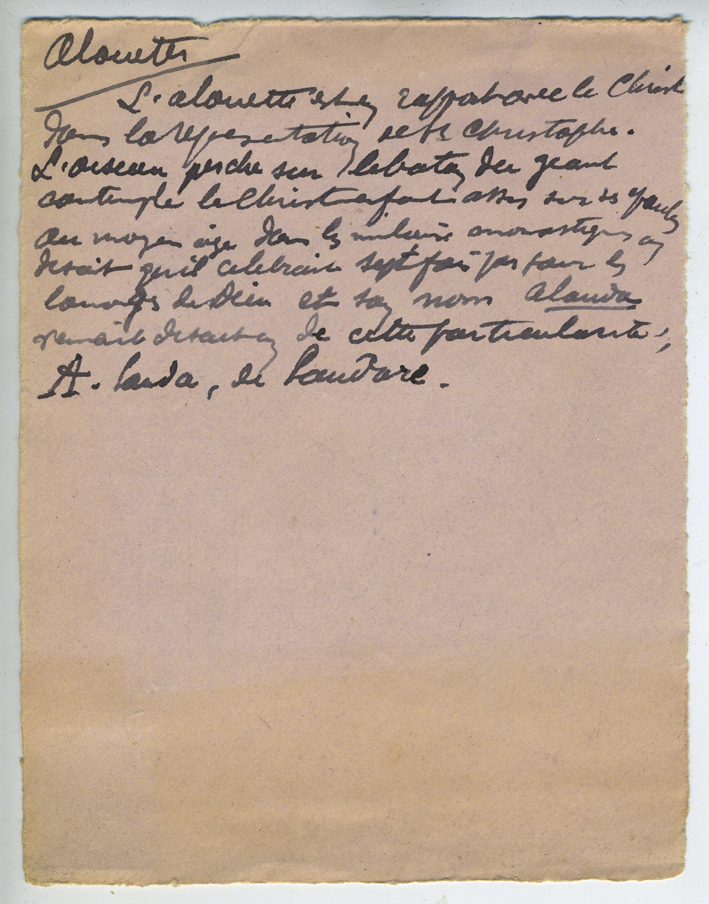 Alouette
L'alouette est en rapport avec le Christ
dans la représentation de St Christophe.
L'oiseau perché sur le baton du géant
contemple le Christ enfant assis sur ses épaules
au moyen âge dans les milieux monastiques on
disait qu'il celebrait sept fois par jour les
louanges de Dieu et son nom Alauda
venait disait-on de cette particularité ;
A. lauda, de laudare.